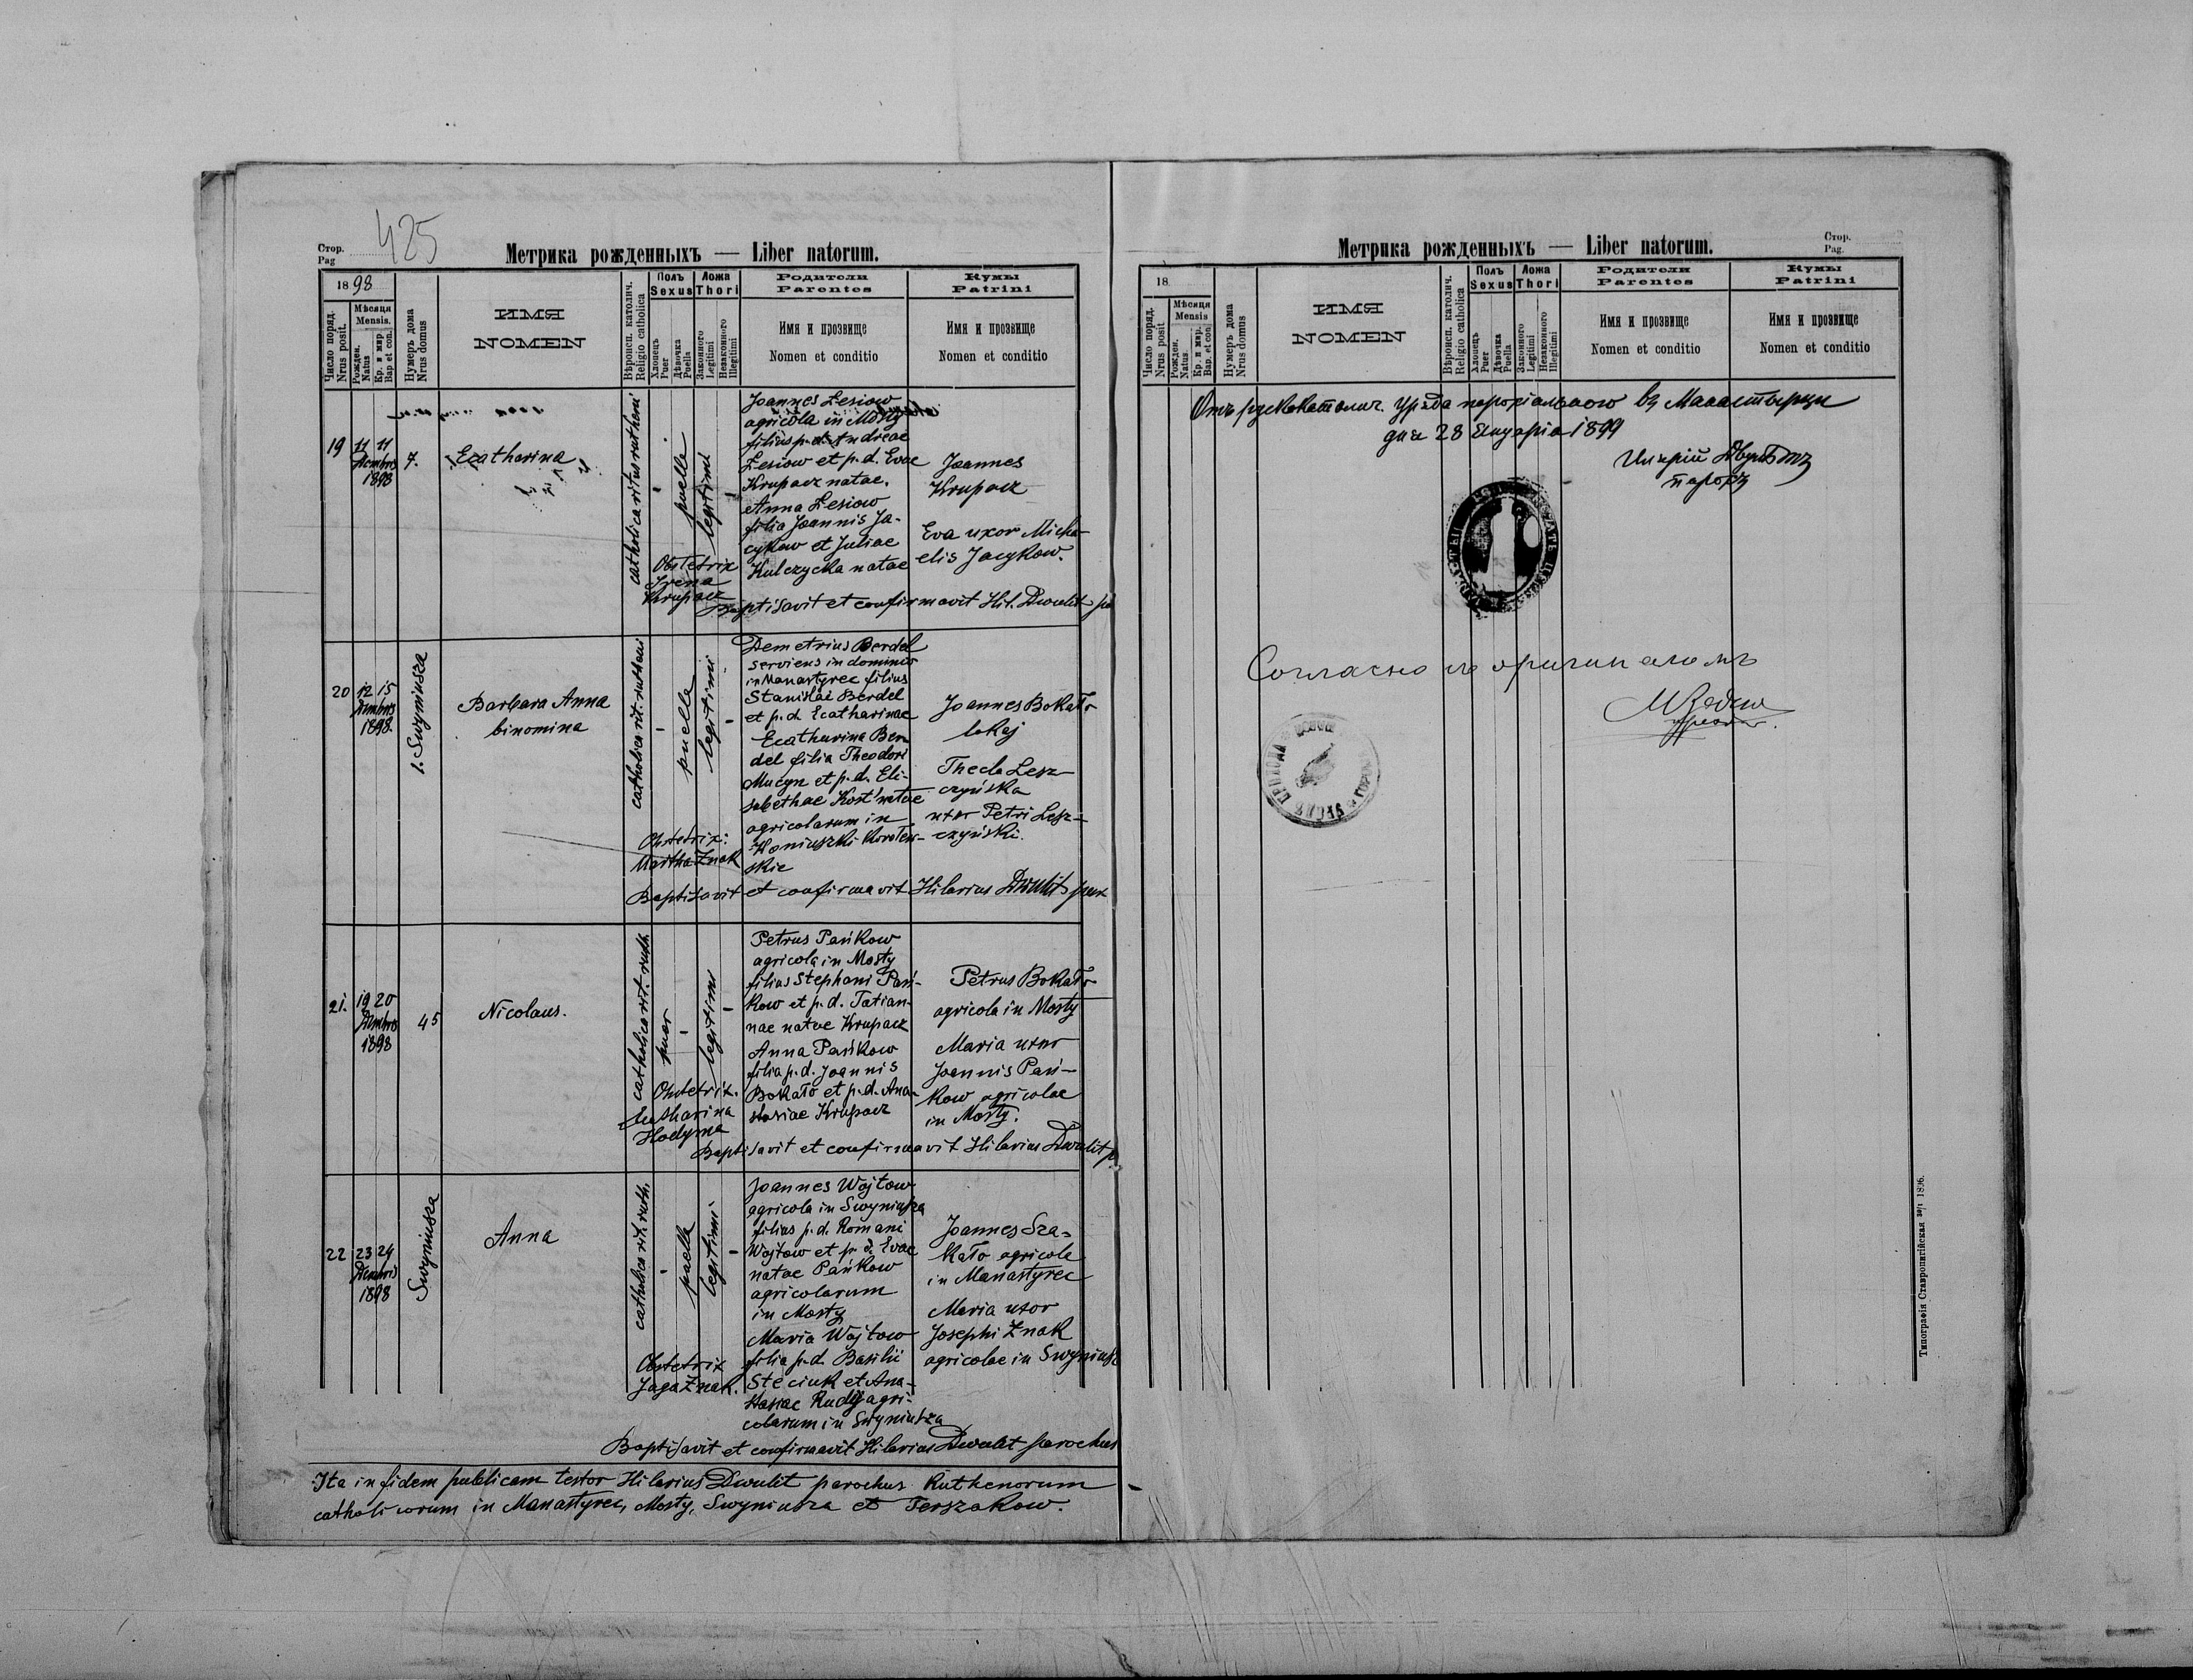 425
Стор.
Pag
Метрика рожденныхъ — Liber natorum.
1898
Число поряд.
Nrus posit.
Мѣсяця
Mensis.
Рожден.
Natus
Кр. и мир.
Bap et con.
Нумеръ дома
Nrus domus
ИМЯ
NOMEN
Вѣроисп. католич.
Religio catholica
Полъ
Sexus
Хлопецъ
Puer
Дѣвочка
Puella
Ложа
Thori
Законного
Legitimi
Незаконного
Illegitimi
Родители
Parentes
Имя и прозвище
Nomen et conditio
Кумы
Patrini
Имя и прозвище
Nomen et conditio
19
11 11
Decmbris
1898
7.
Ecatharina
catholica ritus rutheni
-
puella
legitimi
-
Joannes Lesiow
agricola in Mosty
filius p. d. Andreae
Lesiow et p. d. Evae
Krupacz natae.
Anna Lesiow
filia Joannis Ja-
cykow et Juliae
Kulczycka natae
Joannes
Krupacz
Eva uxor Micha-
elis Jacykow.
Obstetrix
Irena
Krupacz
Baptisavit et confirmavit Hil. Dwulit
20
12 15
Decmbris
1898.
1. Swyniusza
Barbara Anna
binomina
catholica rit. rutheni
-
puella
legitimi
-
Demetrius Berdel
serviens in dominio
in Manastyrec filius
Stanislai Berdel
et p. d. Ecatharinae
Ecatharina Ber-
del filia Theodori
Mucyn et p. d. Eli-
sabethae Kost' natae
agricolarum in
Koniuszki Korolew-
skie
Joannes Bokało
lokaj
Thecla Lesz-
czyńska
uxor Petri Lesz-
czyński.
Obstetrix:
Martha Znak
Baptisavit et confirmavit Hilarius Dwulit
21.
19 20
Decmbris
1898
45
Nicolaus.
catholica rit. ruth.
puer
-
legitimi
-
Petrus Pańkow
agricola in Mosty
filius Stephani Pań-
kow et p. d. Tatian-
nae natae Krupacz
Anna Pańkow
filia p. d. Joannis
Bokało et p. d. Ana-
stasiae Krupacz
Petrus Bokało
agricola in Mosty
Maria uxor
Joannis Pań-
kow agricolae
in Mosty.
Obstetrix.
Ecatharina
Hodyma
Baptisavit et confirmavit Hilarius Dwulit p.
22
23 24
Decmbris
1898
Swyniusza
Anna
catholica rit. ruth.
-
puella
legitimi
-
Joannes Wojtow
agricola in Swyniusza
filius p. d. Romani
Wojtow et p. d. Evae
natae Pańkow
agricolarum
in Mosty
Maria Wojtow
filia p. d. Basilii
Steciuk et Ana-
stasiae Rudyj agri-
colarum in Swyniusza
Joannes Sza-
kało agricola
in Manastyrec
Maria uxor
Josephi Znak
agricolae in Swyniusza
Obstetrix
Jaga Znak.
Baptisavit et confirmavit Hilarius Dwulit parochus
Ita in fidem publicam testor Hilarius Dwulit parochus Ruthenorum
catholicorum in Manastyrec, Mosty, Swyniusza et Terszakow.
Метрика рожденныхъ — Liber natorum.
Стор.
Pag.
18
Число поряд.
Nrus posit
Мѣсяця
Mensis
Рожден.
Natus.
Кр. и мир.
Bap. et con
Нумеръ дома
Nrus domus
ИМЯ
NOMEN
Вѣроисп. католич.
Religio catholica
Полъ
Sexus
Хлопецъ
Puer
Дѣвочка
Puella
Ложа
Thori
Законного
Legitimi
Незаконного
Illegitimi
Родители
Parentes
Имя и прозвище
Nomen et conditio
Кумы
Patrini
Имя и прозвище
Nomen et conditio
Отъ рускокатолич. Уряда парохіального въ Манастырци
дня 28 Януарія 1899
Иларій Двулѣтъ
парохъ
Согласно съ оригиналомъ
Типографія Ставропигійская 1896.